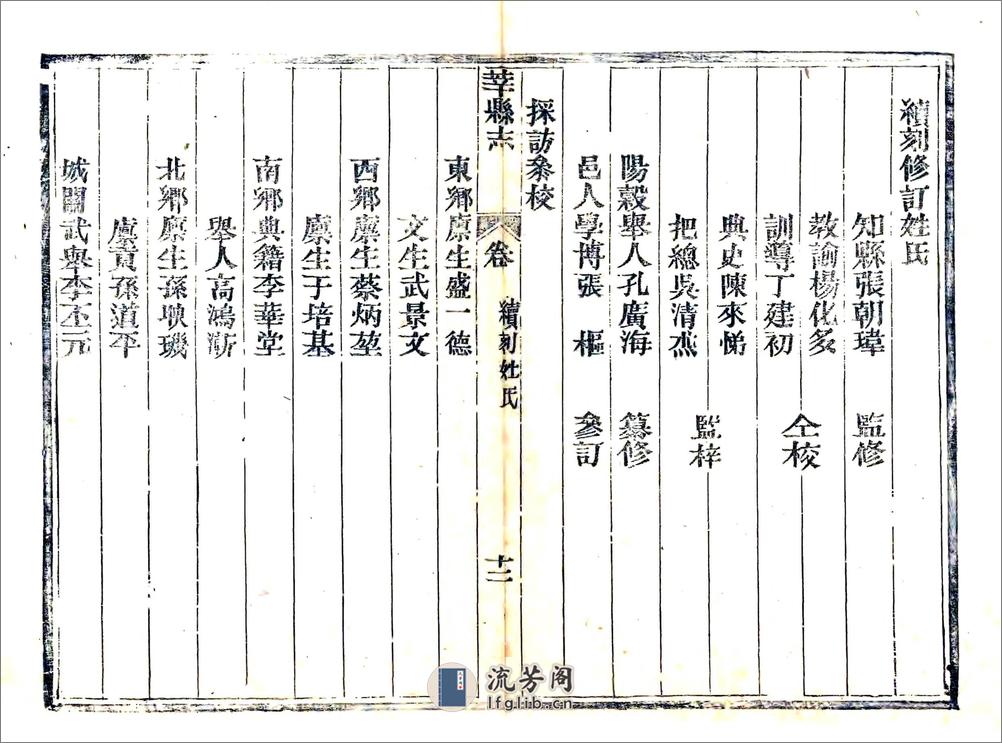 續刻修訂姓氏
知縣張朝瑋 監修
教諭楊化多
訓導丁建初 仝校
典史陳來悌
把總吳清杰 監梓
陽穀舉人孔廣海 纂修
邑人學博張 樞 參訂
採訪叅校
莘縣志 卷 續刻姓氏 十二
東鄉廩生盛一德
文生武景文
西鄉廩生蔡炳堃
廩生于培基
南鄉典籍李華堂
舉人高鴻漸
北鄉廩生孫塽璣
廩貢孫道平
城關武舉李丕元
流芳阁
lfglib.cn